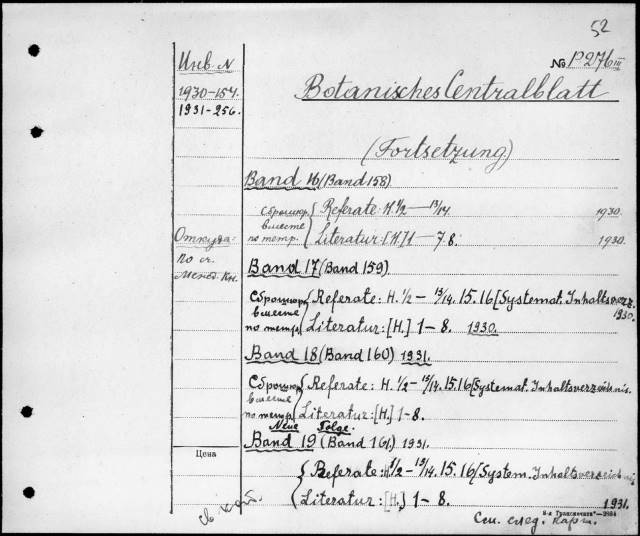 52
Инв. N
№ P276 III
1930-154.
1931-256.
Botanisches Centralblatt
(Fortsetzung)
Band 16 (Band 158)
Сброшюр. вместе по тетр. { Referate: H. 1/2 — 13/14. 1930.
Literatur: [H.] 1 — 7.8. 1930.
Откуда:
по сч.
Межд. Кн.
Band 17 (Band 159)
Сброшюр. вместе по тетр. { Referate: H. 1/2 — 13/14. 15.16 [Systemat. Inhaltsverz. 1930.
Literatur: [H.] 1 — 8. 1930.
Band 18 (Band 160) 1931.
Сброшюр. вместе по тетр. { Referate: H. 1/2 — 13/14. 15.16 [Systemat. Inhaltsverzeichnis.
Literatur: [H.] 1 — 8.
Neue Folge.
Band 19 (Band 161.) 1931.
Цена
{ Referate: H. 1/2 — 13/14. 15.16 [System. Inhaltsverzeichnis
Literatur: [H.] 1 — 8. 1931.
См. след. карт.